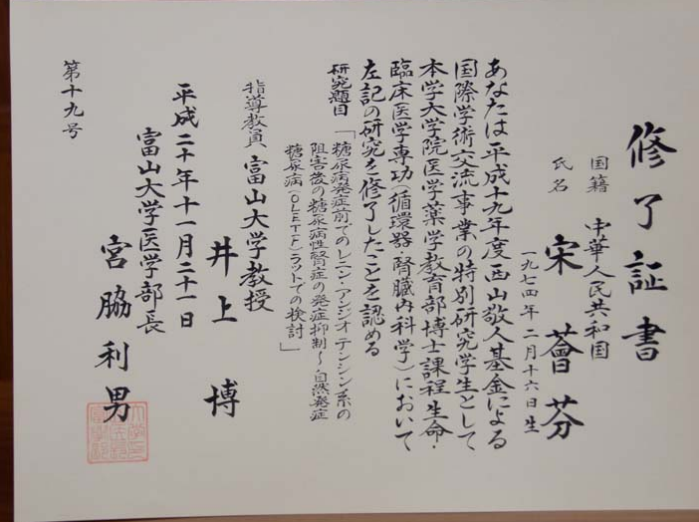 修了証書
国籍 中華人民共和国
氏名 宋薈芬
一九七四年二月十六日生
あなたは平成十九年度西山敬人基金による
国際学術交流事業の特別研究学生として
本学大学院医学薬学教育部博士課程生命・
臨床医学専攻(循環器・腎臓内科学)において
左記の研究を修了したことを認める
研究題目 「糖尿病発症前でのレニン・アンジオテンシン系の
阻害後の糖尿病性腎症の発症抑制～自然発症
糖尿病(OLETF)ラットでの検討」
指導教員 富山大学教授
井上博
平成二十年十一月二十一日
富山大学医学部長
宮脇利男
第十九号